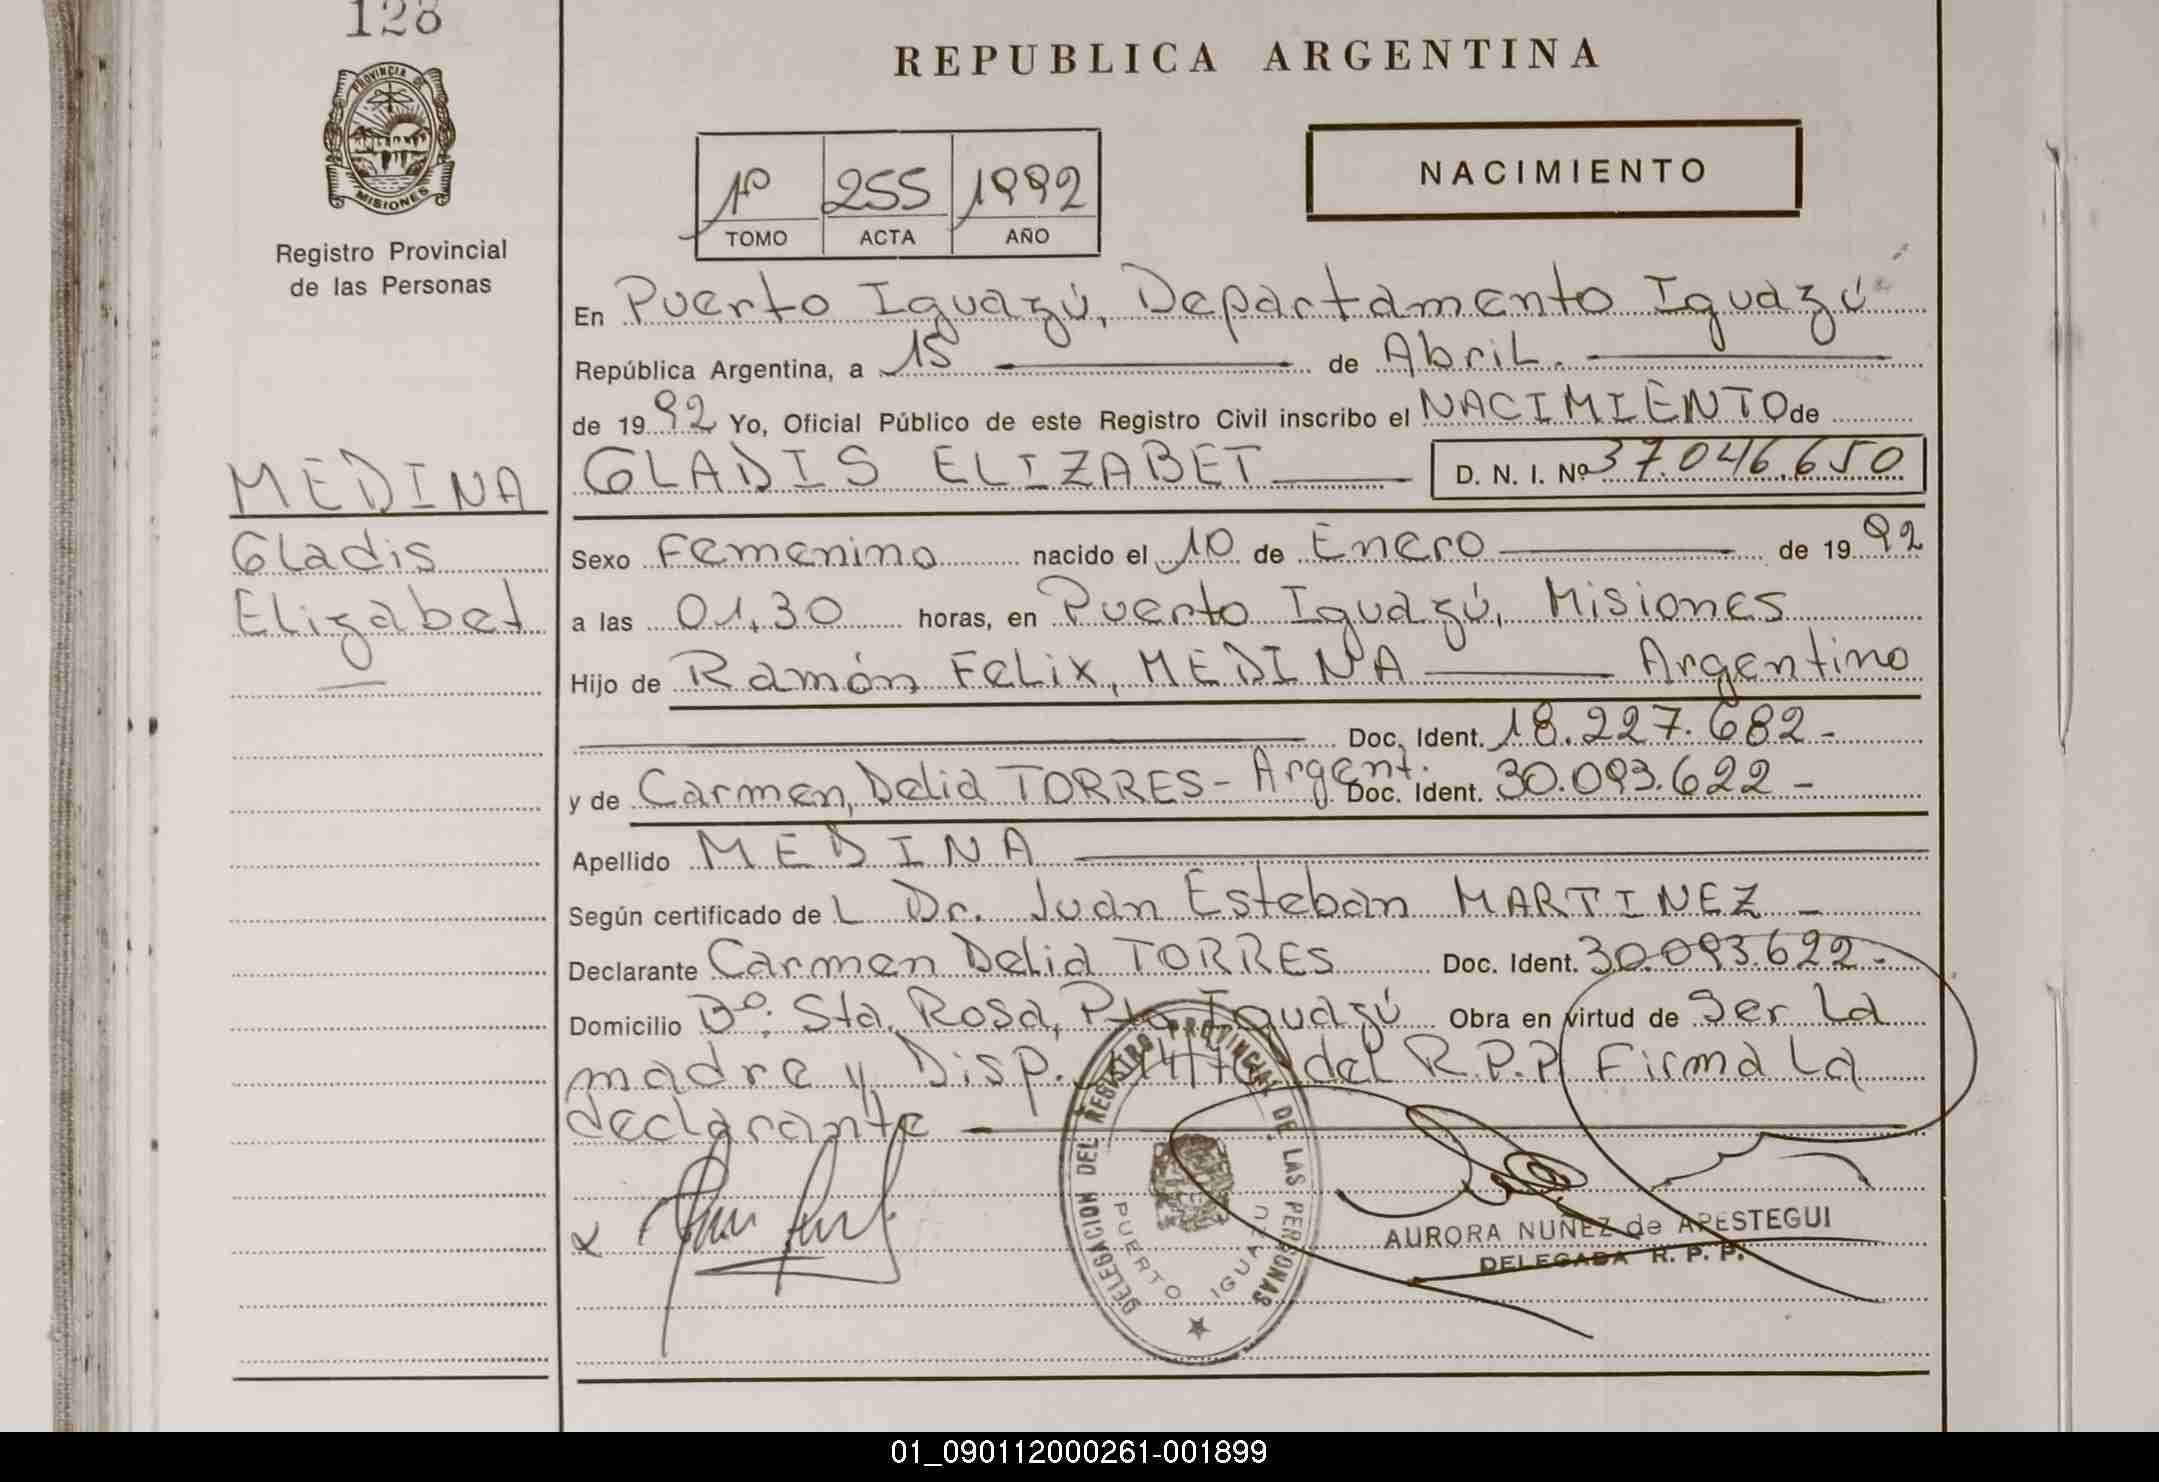 128
PROVINCIA DE
MISIONES
Registro Provincial
de las Personas
MEDINA
Gladis
Elizabet
REPUBLICA ARGENTINA
1º 255 1992
TOMO ACTA AÑO
NACIMIENTO
En Puerto Iguazú, Departamento Iguazú
República Argentina, a 15 de Abril.
de 1992 Yo, Oficial Público de este Registro Civil inscribo el NACIMIENTO de
GLADIS ELIZABET D. N. I. Nº 37.046.650
Sexo Femenino nacido el 10 de Enero de 1992
a las 01,30 horas, en Puerto Iguazú, Misiones
Hijo de Ramón Felix, MEDINA Argentino
Doc. Ident. 18.227.682-
y de Carmen, Delia TORRES- Argent. Doc. Ident. 30.093.622-
Apellido MEDINA
Según certificado de L Dr. Juan Esteban MARTINEZ -
Declarante Carmen Delia TORRES Doc. Ident. 30.093.622-
Domicilio Bº: Sta, Rosa, Pto Iguazú Obra en virtud de Ser La
madre y Disp. del R.P.P Firma La
declarante
DELEGACION DEL REGISTRO PROVINCIAL DE LAS PERSONAS
PUERTO IGUAZU
AURORA NUÑEZ de APESTEGUI
DELEGADA R. P. P.
01_090112000261-001899